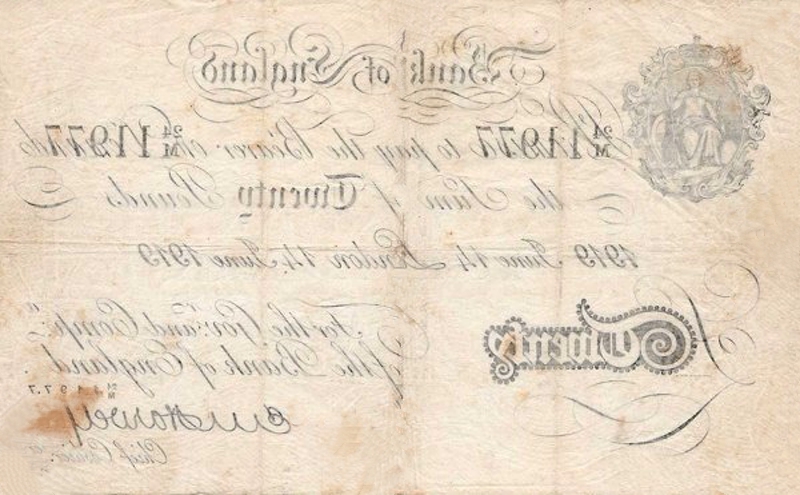 Bank of England
24/M 11977 to pay the Bearer on Demand 24/M 11977
the Sum of Twenty Pounds
1919 June 14 London 14 June 1919
For the Gov.r and Comp.a
of the Bank of England
Twenty
24/M 11977
E M Harvey
Chief Cashier